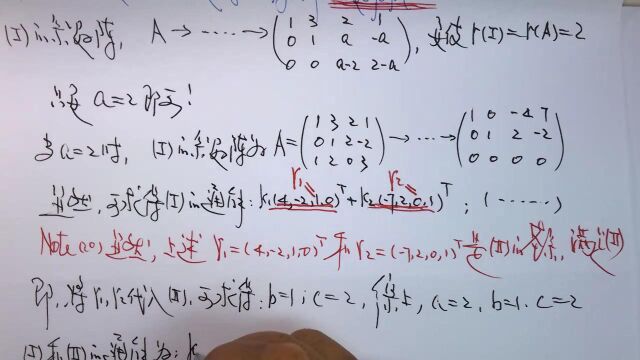 (I)的系数阵, A → ······ → (1 3 2 1
0 1 a -a
0 0 a-2 2-a), 要使 r(I)=r(A)=2
只需 a=2 即可!
当a=2时, (I)的系数阵为 A=(1 3 2 1
0 1 2 -2
1 2 0 3) → ··· → (1 0 -4 7
0 1 2 -2
0 0 0 0)
r₁ r₂
可求得(I)的通解: k₁(4,-2,1,0)ᵀ+k₂(-7,2,0,1)ᵀ; (······)
Note(10) 上述 r₁=(4,-2,1,0)ᵀ和r₂=(-7,2,0,1)ᵀ (II)的 (II)
即, 将r₁,r₂代入(II), 可求得: b=1; c=2, 综上, a=2, b=1. c=2
(I)和(II)的通解为: k